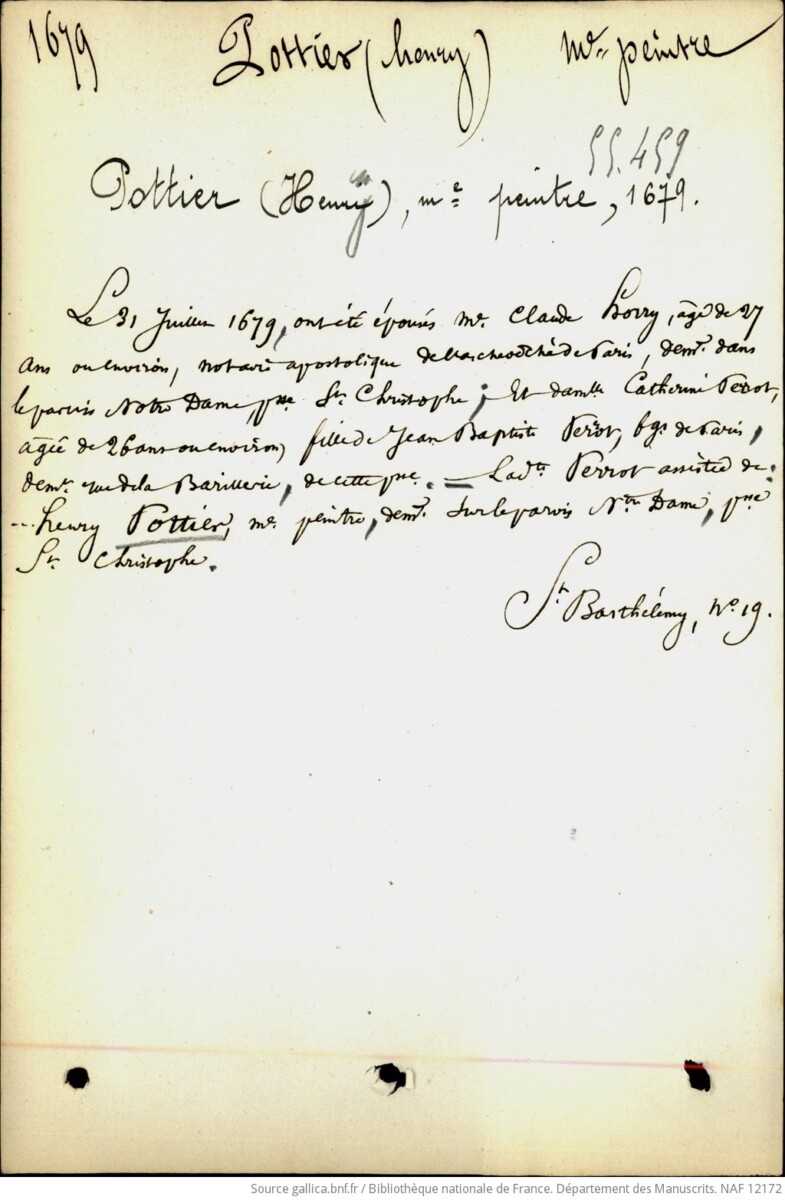 1679 Pottier (henry) me peintre
55.459
Pottier (Henry), me peintre, 1679.
Le 31 Juillet 1679, ont été épousés Me. Claude Horry, âgé de 27
ans ou environ, notaire apostolique de l'archevêché de Paris, demt. dans
le parvis Notre Dame, psse St. Christophe ; Et damlle Catherine Perrot,
agée de 26 ans ou environ, fille de Jean Baptiste Perrot, bgs. de Paris,
demt. rue de la Barillerie, de cette psse. — Ladte Perrot assistée de :
... henry Pottier, me. peintre, demt. sur le parvis Ntre Dame, psse
St. Christophe.
St Barthélemy, No. 19.
Source gallica.bnf.fr / Bibliothèque nationale de France. Département des Manuscrits. NAF 12172